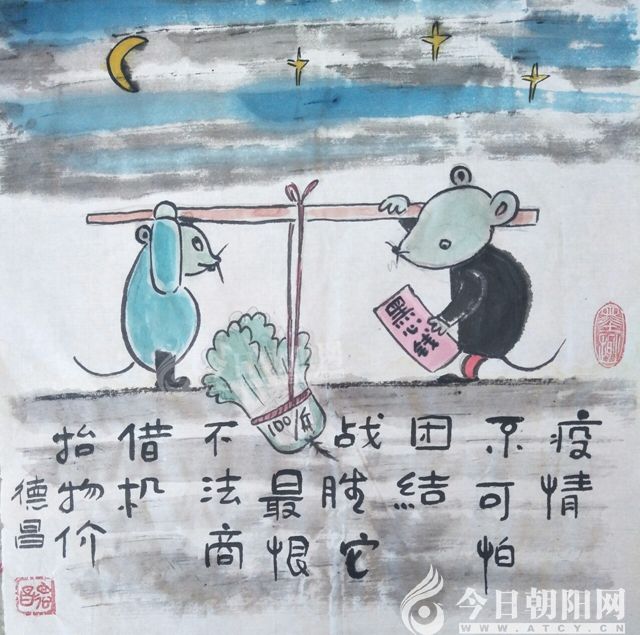 黑心钱
100/斤
疫情
不可怕
团結
战胜它
最恨
不法商
借机
抬物价
德昌
今日朝阳网
WWW.ATCY.CN